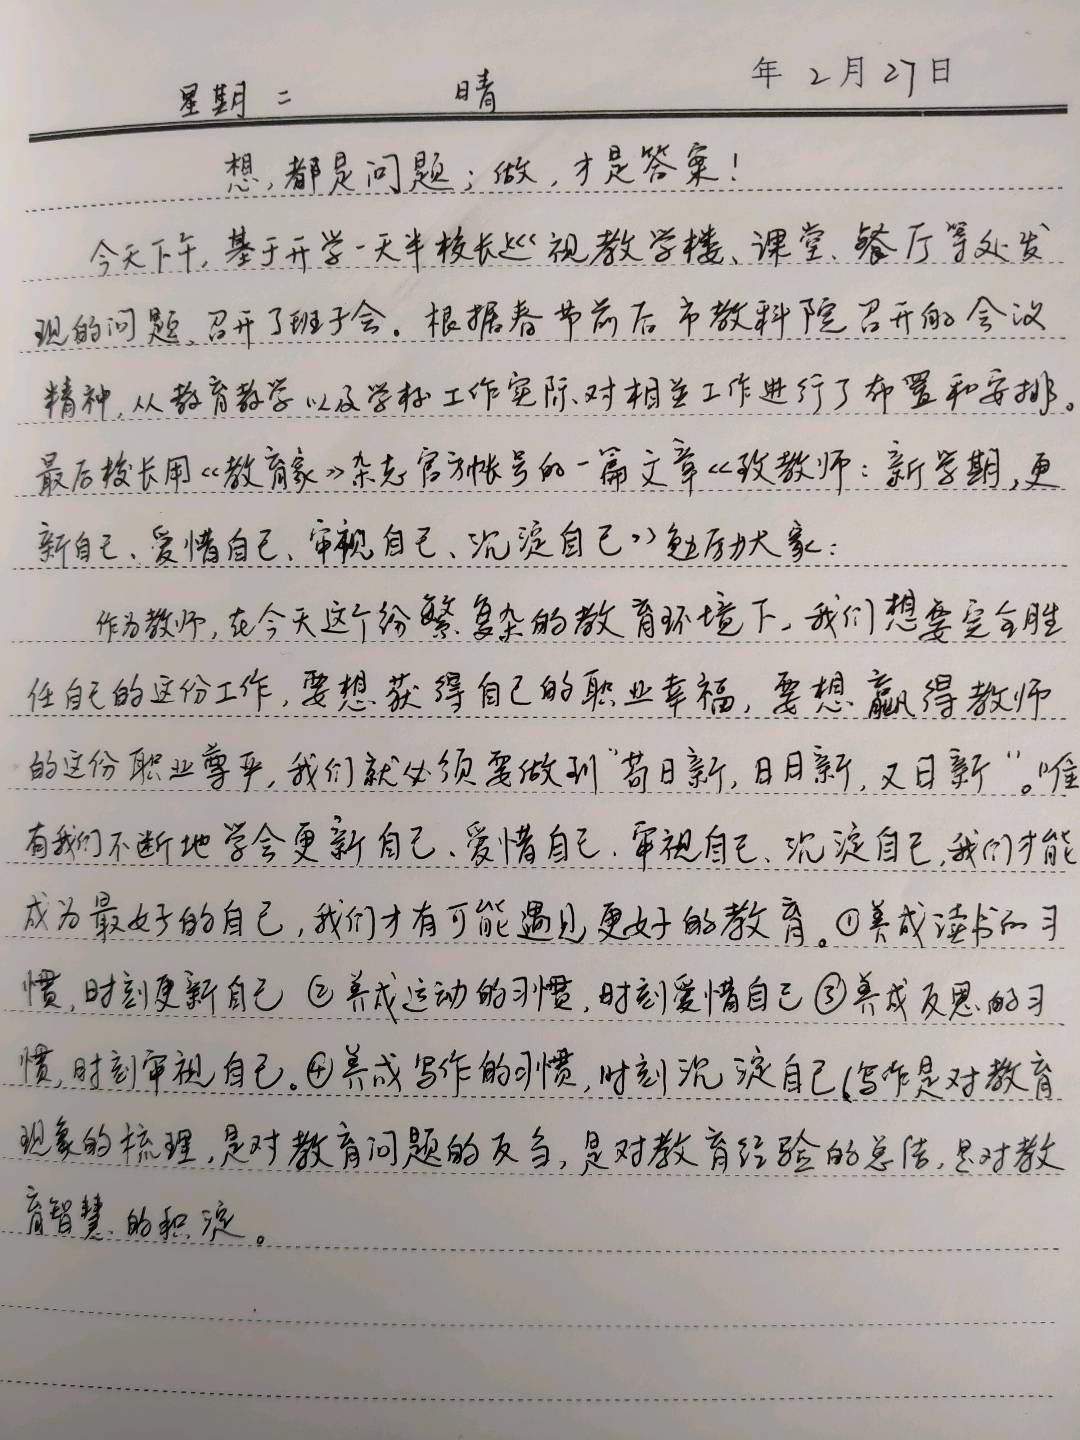 年 2月27日
星期二 晴
想，都是问题；做，才是答案！
今天下午，基于开学一天半校长巡视教学楼、课堂、餐厅等处发
现的问题，召开了班子会。根据春节前后市教科院召开的会议
精神，从教育教学以及学校工作实际，对相关工作进行了布置和安排。
最后校长用《教育家》杂志官方帐号的一篇文章《致教师：新学期，更
新自己、爱惜自己、审视自己、沉淀自己》勉励大家：
作为教师，在今天这个纷繁复杂的教育环境下，我们想要完全胜
任自己的这份工作，要想获得自己的职业幸福，要想赢得教师
的这份职业尊严，我们就必须要做到“苟日新，日日新，又日新”。唯
有我们不断地学会更新自己、爱惜自己、审视自己、沉淀自己，我们才能
成为最好的自己，我们才有可能遇见更好的教育。①养成读书的习
惯，时刻更新自己 ②养成运动的习惯，时刻爱惜自己 ③养成反思的习
惯，时刻审视自己。④养成写作的习惯，时刻沉淀自己（写作是对教育
现象的梳理，是对教育问题的反刍，是对教育经验的总结，是对教
育智慧的积淀。